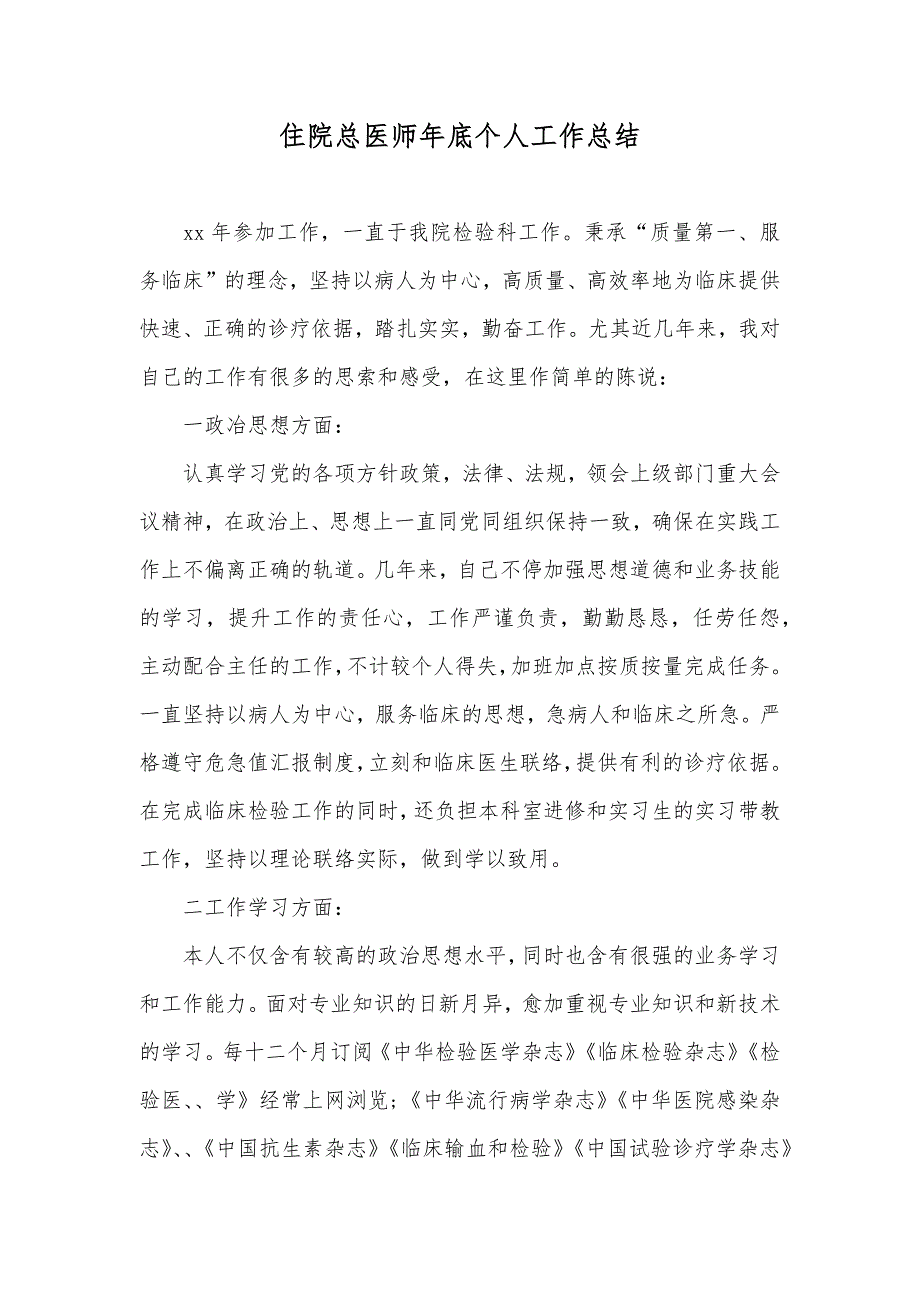 住院总医师年底个人工作总结
xx 年参加工作，一直于我院检验科工作。秉承“质量第一、服
务临床”的理念，坚持以病人为中心，高质量、高效率地为临床提供
快速、正确的诊疗依据，踏扎实实，勤奋工作。尤其近几年来，我对
自己的工作有很多的思索和感受，在这里作简单的陈说：
一政冶思想方面：
认真学习党的各项方针政策，法律、法规，领会上级部门重大会
议精神，在政治上、思想上一直同党同组织保持一致，确保在实践工
作上不偏离正确的轨道。几年来，自己不停加强思想道德和业务技能
的学习，提升工作的责任心，工作严谨负责，勤勤恳恳，任劳任怨，
主动配合主任的工作，不计较个人得失，加班加点按质按量完成任务。
一直坚持以病人为中心，服务临床的思想，急病人和临床之所急。严
格遵守危急值汇报制度，立刻和临床医生联络，提供有利的诊疗依据。
在完成临床检验工作的同时，还负担本科室进修和实习生的实习带教
工作，坚持以理论联络实际，做到学以致用。
二工作学习方面：
本人不仅含有较高的政治思想水平，同时也含有很强的业务学习
和工作能力。面对专业知识的日新月异，愈加重视专业知识和新技术
的学习。每十二个月订阅《中华检验医学杂志》《临床检验杂志》《检
验医、、学》经常上网浏览；《中华流行病学杂志》《中华医院感染杂
志》、、《中国抗生素杂志》《临床输血和检验》《中国试验诊疗学杂志》